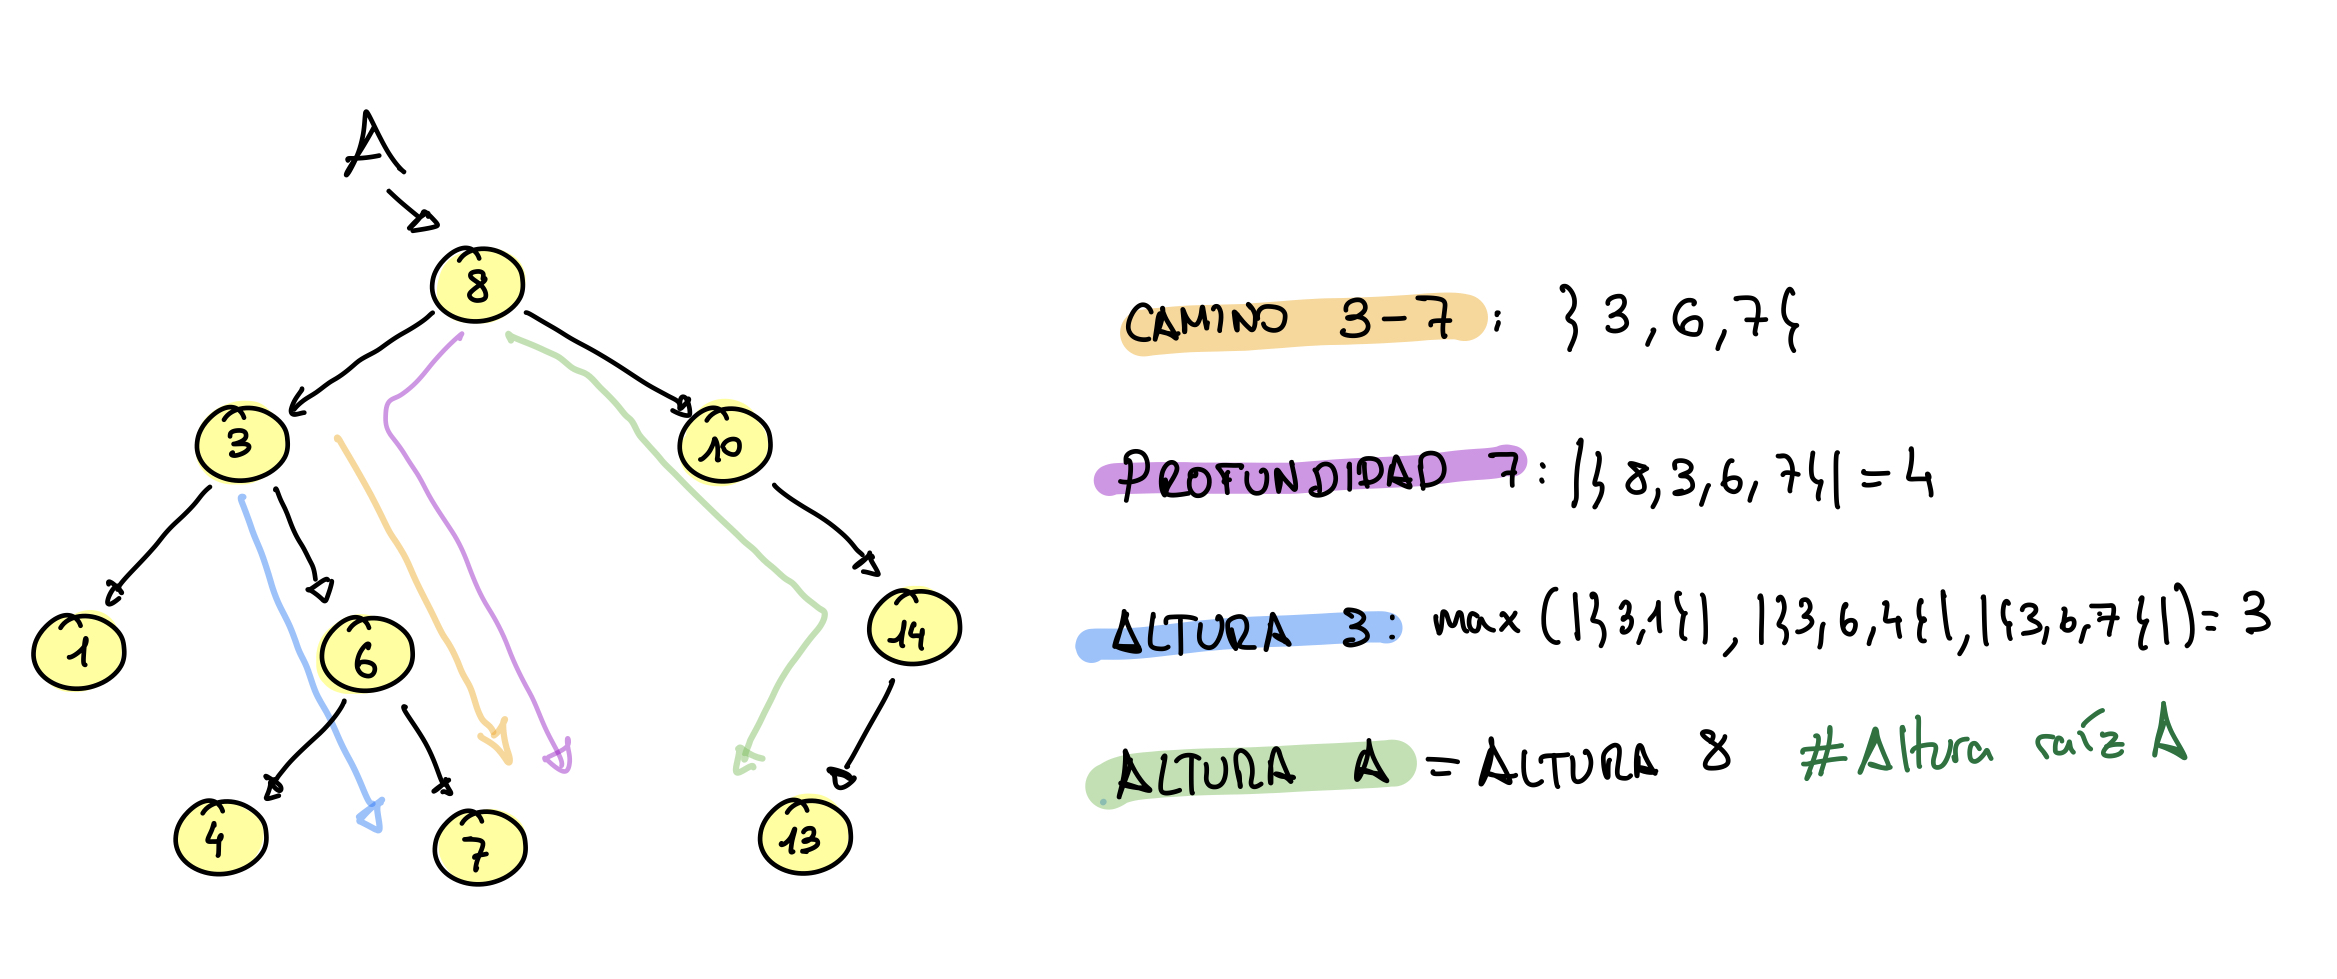 A
8
3
10
1
6
14
4
7
13
CAMINO 3-7: }3,6,7{
PROFUNDIDAD 7: |}8,3,6,7{| = 4
ALTURA 3: max (|}3,1{|, |}3,6,4{|, |{3,6,7{|) = 3
ALTURA A = ALTURA 8 #Altura raíz A